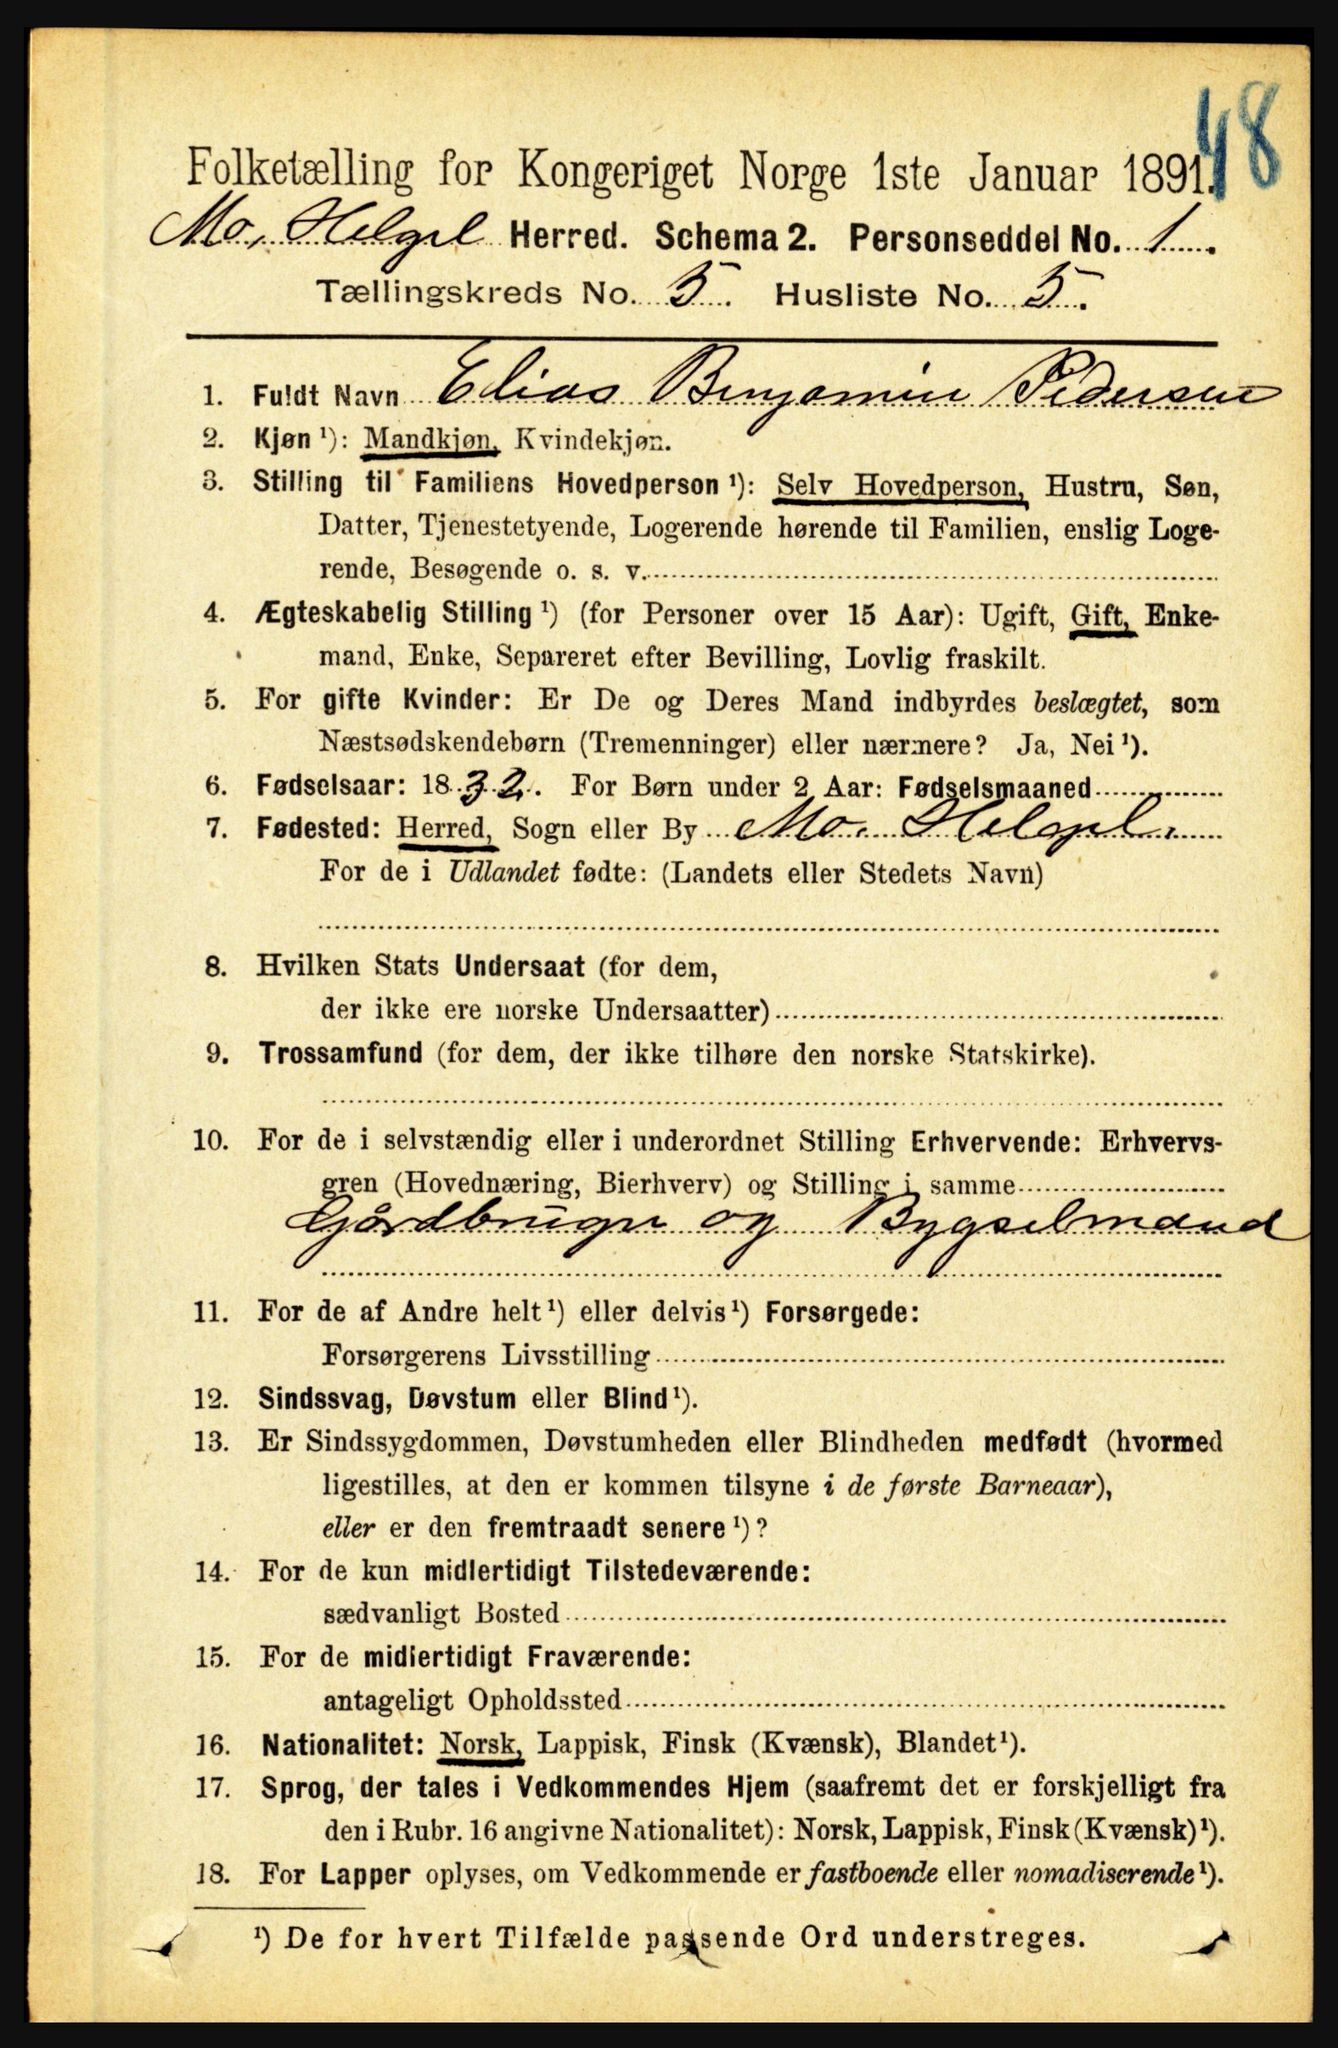 48
Folketælling for Kongeriget Norge 1ste Januar 1891.
Mo, Helgel Herred. Schema 2. Personseddel No. 1.
Tællingskreds No. 5. Husliste No. 5.
1. Fuldt Navn Elias Benjamin Pedersen
2. Kjøn ¹): Mandkjøn, Kvindekjøn.
3. Stilling til Familiens Hovedperson ¹): Selv Hovedperson, Hustru, Søn,
Datter, Tjenestetyende, Logerende hørende til Familien, enslig Loge-
rende, Besøgende o. s. v.
4. Ægteskabelig Stilling ¹) (for Personer over 15 Aar): Ugift, Gift, Enke-
mand, Enke, Separeret efter Bevilling, Lovlig fraskilt.
5. For gifte Kvinder: Er De og Deres Mand indbyrdes beslægtet, som
Næstsødskendebørn (Tremenninger) eller nærmere? Ja, Nei ¹).
6. Fødselsaar: 1832. For Børn under 2 Aar: Fødselsmaaned
7. Fødested: Herred, Sogn eller By Mo. Helgel.
For de i Udlandet fødte: (Landets eller Stedets Navn)
8. Hvilken Stats Undersaat (for dem,
der ikke ere norske Undersaatter)
9. Trossamfund (for dem, der ikke tilhøre den norske Statskirke).
10. For de i selvstændig eller i underordnet Stilling Erhvervende: Erhvervs-
gren (Hovednæring, Bierhverv) og Stilling i samme
Gårdbruger og Bygselmand
11. For de af Andre helt ¹) eller delvis ¹) Forsørgede:
Forsørgerens Livsstilling
12. Sindssvag, Døvstum eller Blind ¹).
13. Er Sindssygdommen, Døvstumheden eller Blindheden medfødt (hvormed
ligestilles, at den er kommen tilsyne i de første Barneaar),
eller er den fremtraadt senere ¹)?
14. For de kun midlertidigt Tilstedeværende:
sædvanligt Bosted
15. For de midlertidigt Fraværende:
antageligt Opholdssted
16. Nationalitet: Norsk, Lappisk, Finsk (Kvænsk), Blandet ¹).
17. Sprog, der tales i Vedkommendes Hjem (saafremt det er forskjelligt fra
den i Rubr. 16 angivne Nationalitet): Norsk, Lappisk, Finsk (Kvænsk) ¹).
18. For Lapper oplyses, om Vedkommende er fastboende eller nomadiserende ¹).
¹) De for hvert Tilfælde passende Ord understreges.